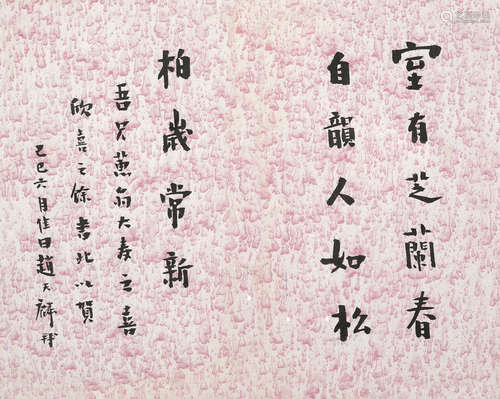 室有芝蘭春
自韻人如松
柏歲常新
吾兄蕙翁大壽之喜
欣喜之餘書此以賀
己巳六月佳日趙天麟拜